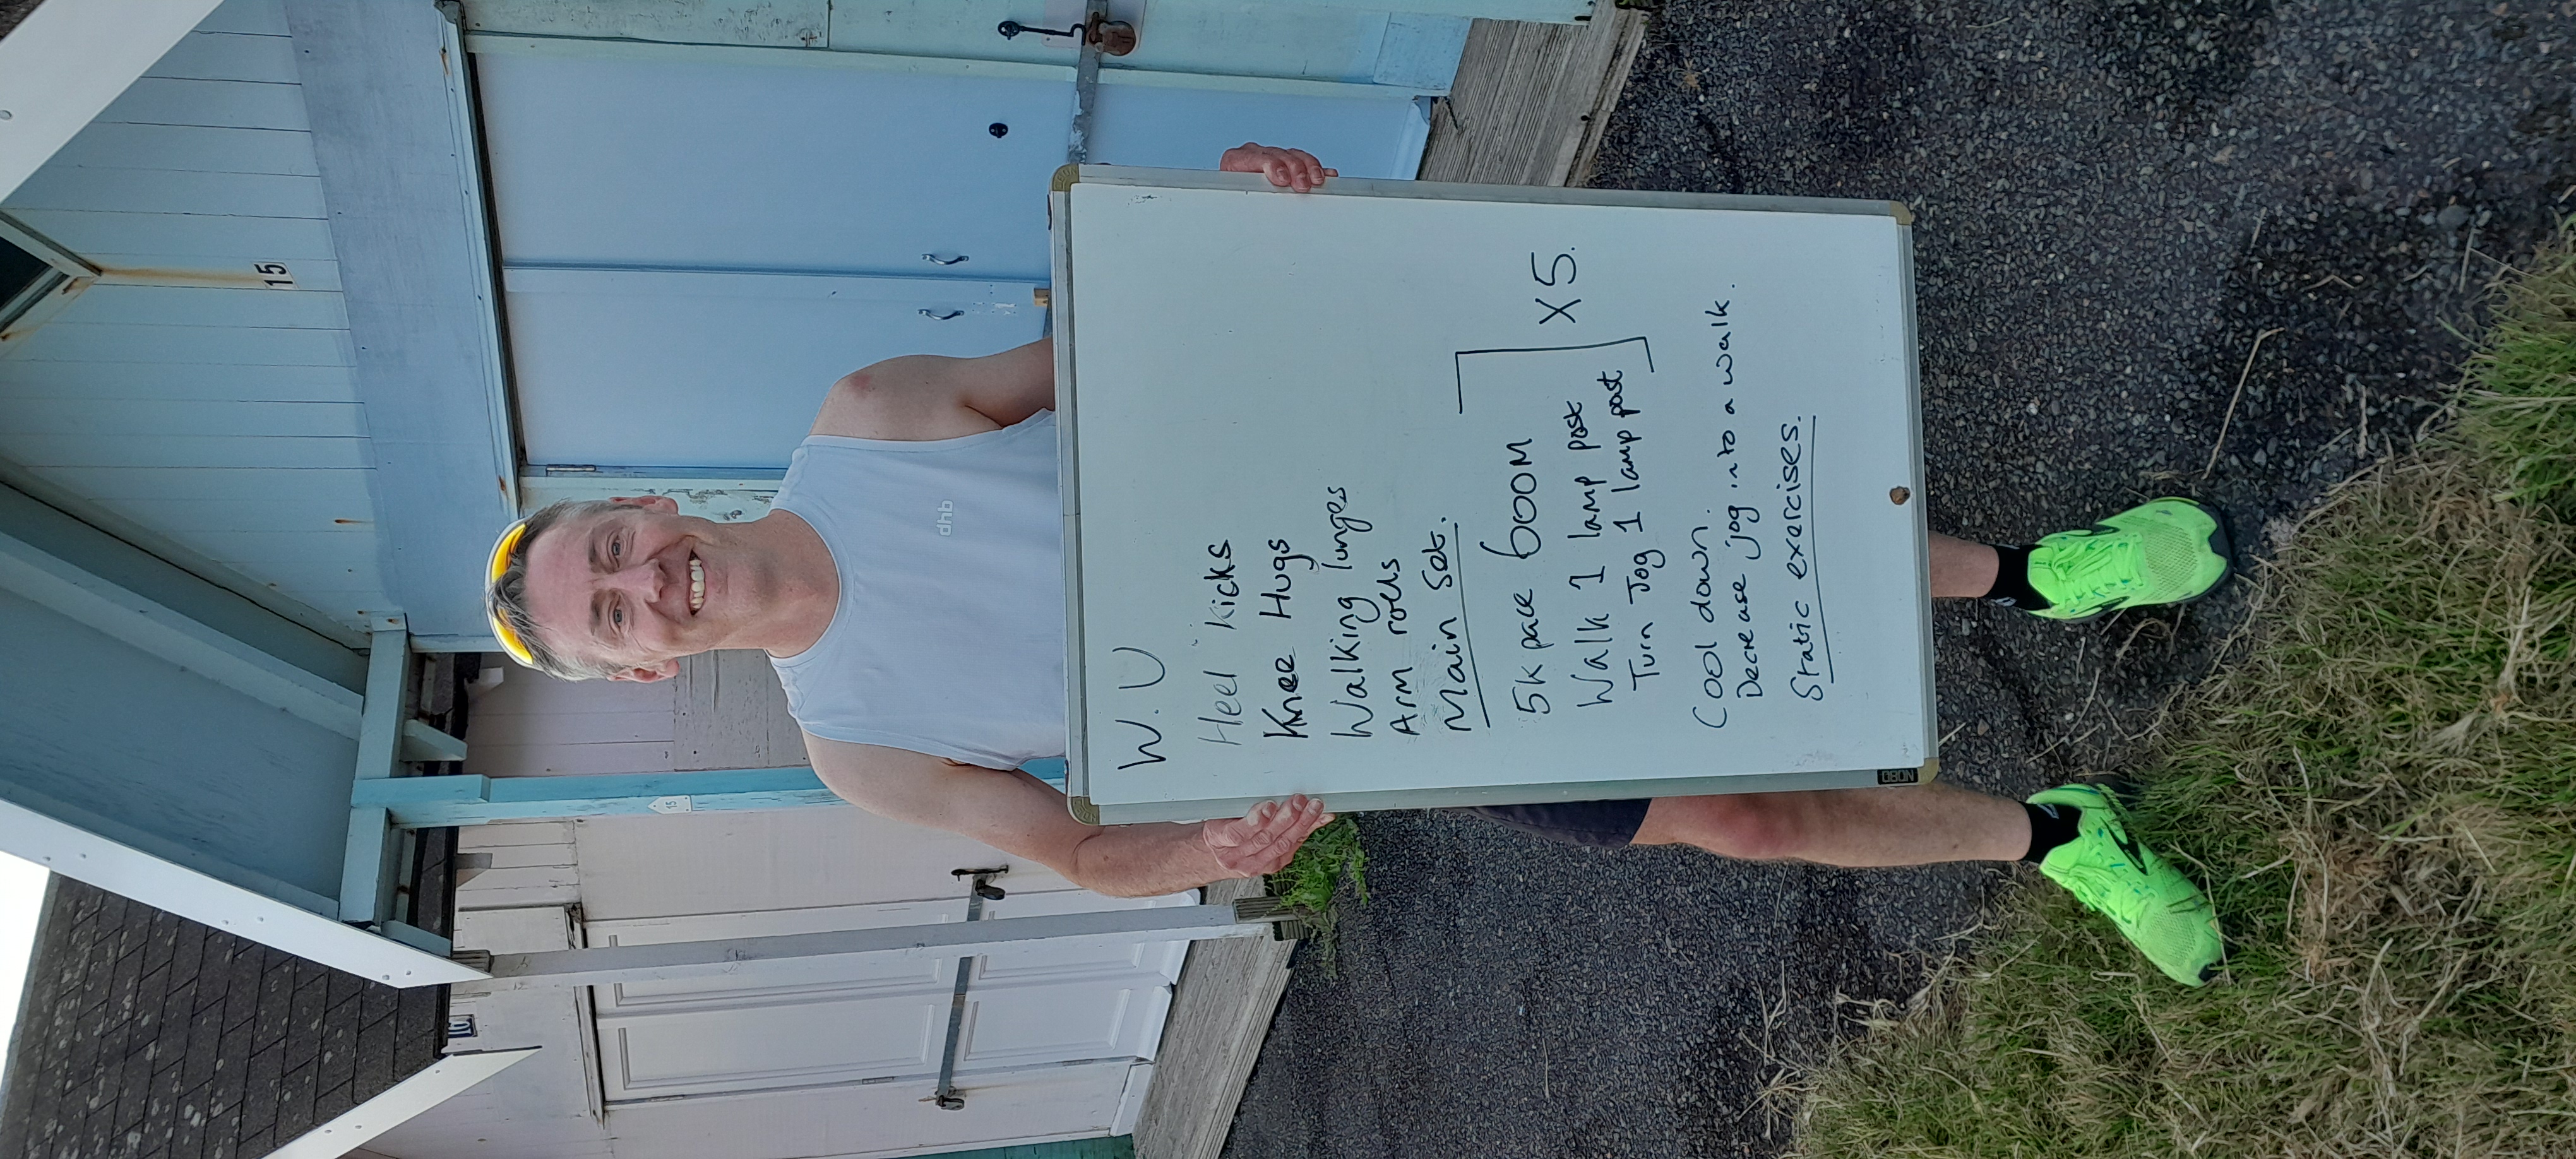 15
16
15
dhb
W.U
Heel Kicks
Knee Hugs
Walking lunges
Arm rolls
Main Set.
5k pace 600M
Walk 1 lamp post
Turn Jog 1 lamp post
X5.
Cool down.
Decrease jog into a walk.
Static exercises.
NOBO